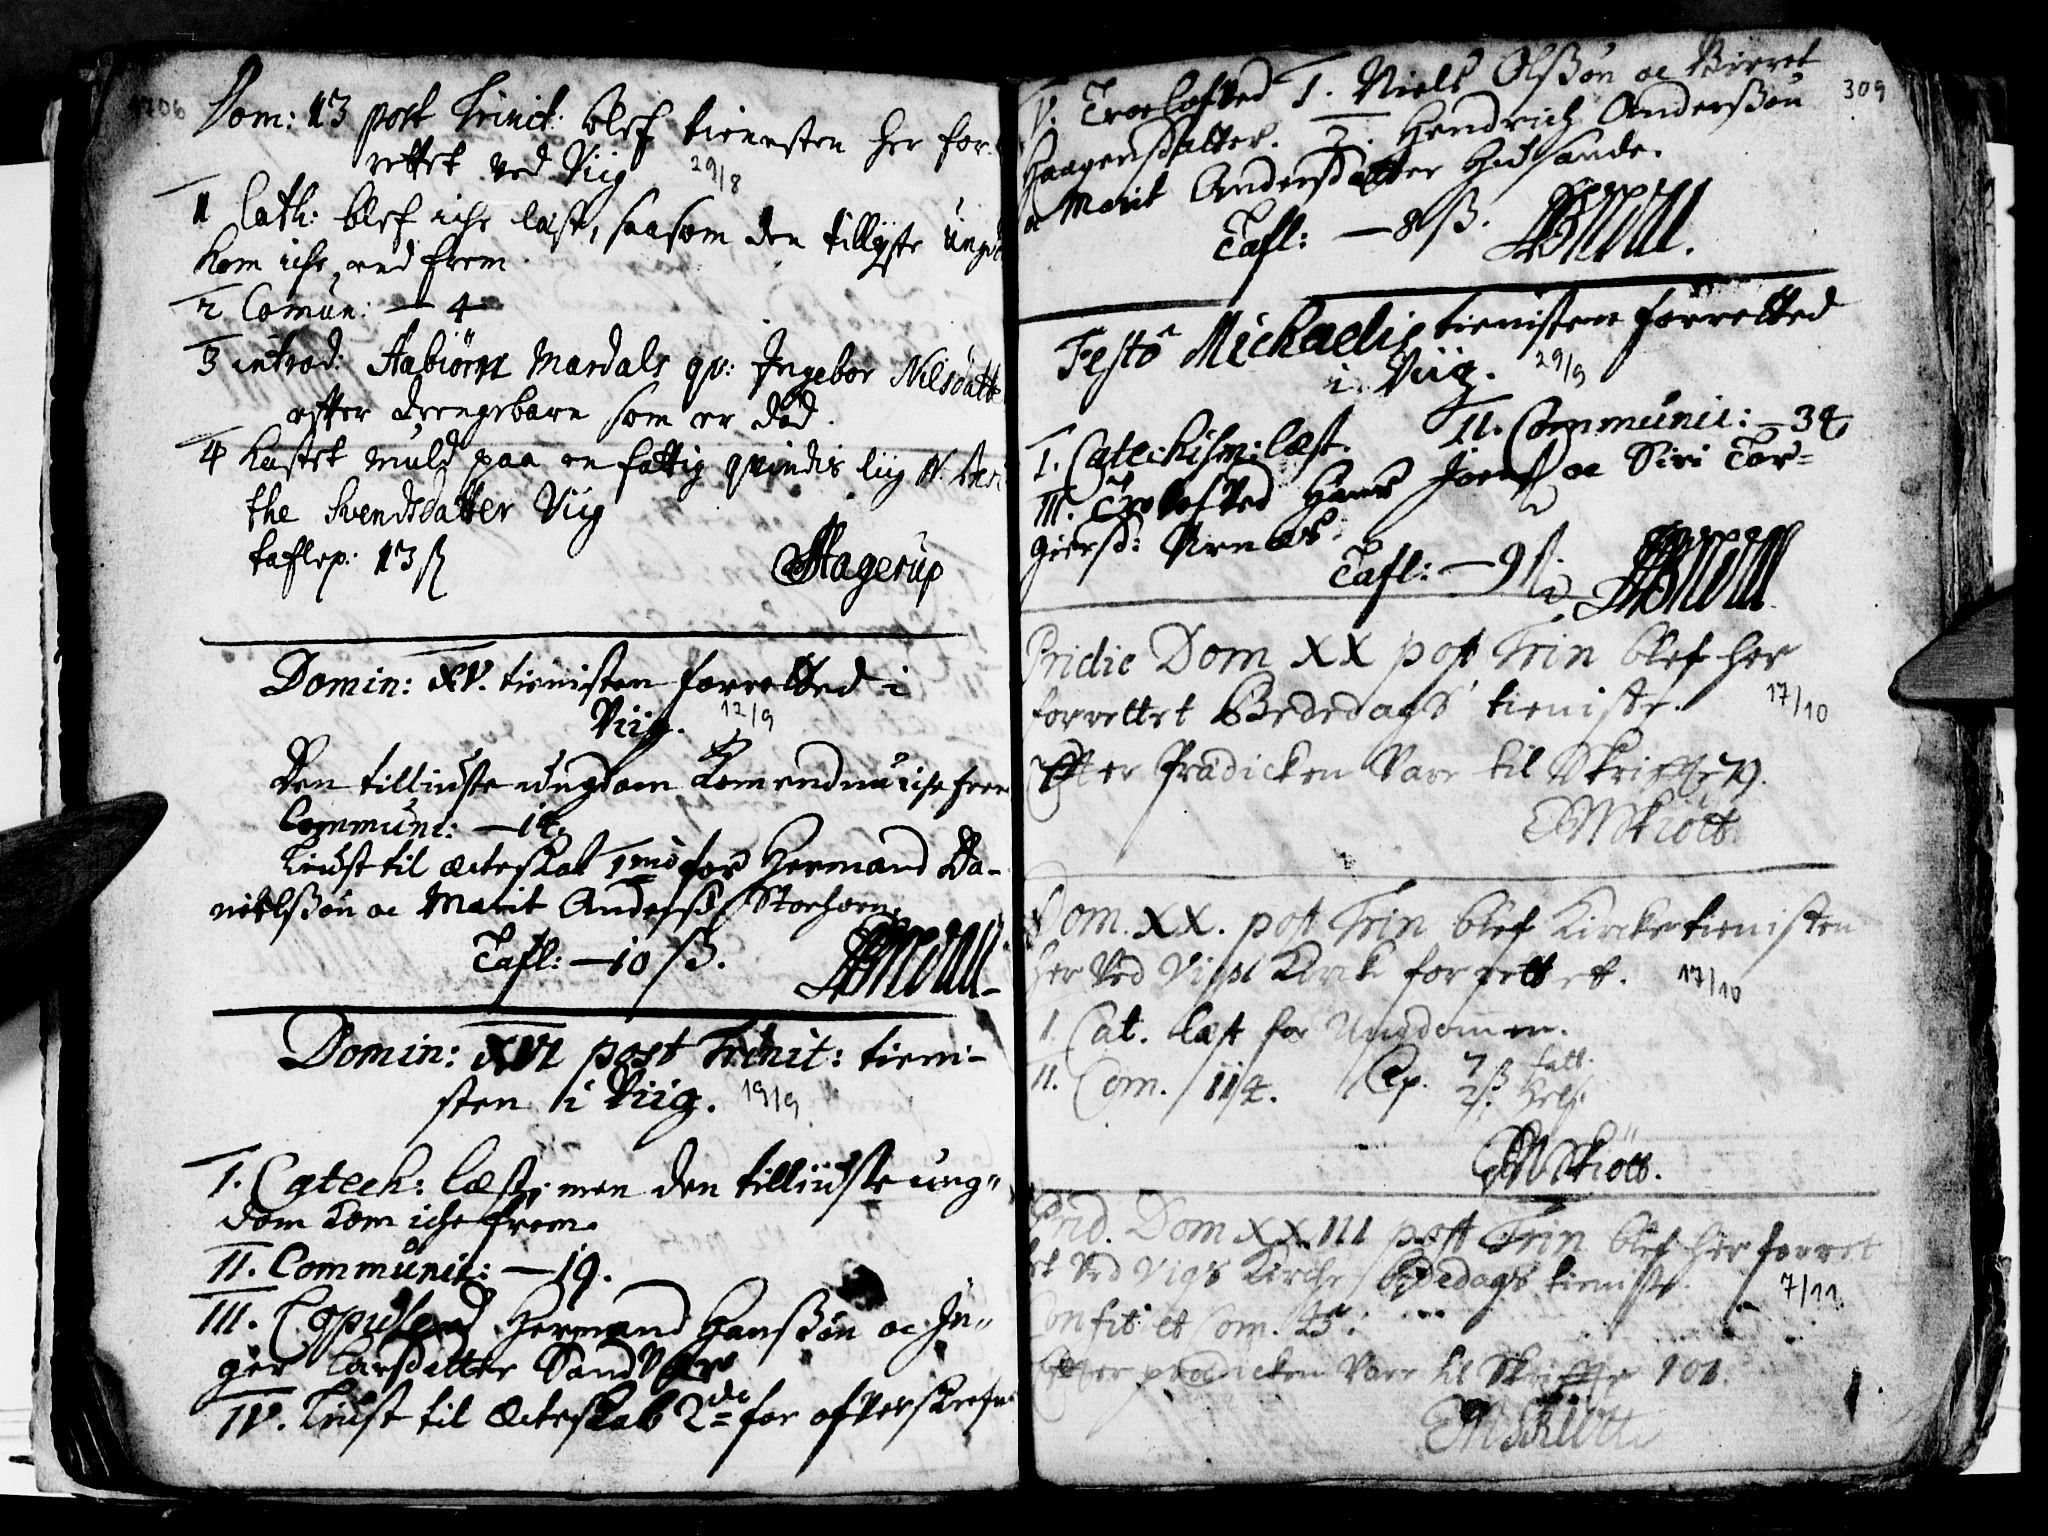 1706
Dom: 13 post Trinit: blef tienesten her for-
rettet ved Viig
29/8
1 Cath: blef iche læst, saasom den tillyste ungd
kom iche end frem.
2 Comun: — 4
3 introd: Aabiörn Mardals qv: Ingebor Nilsdatt
efter drengebarn som er död.
4 kastet muld paa en fattig qvindis liig N.
the Svendsdatter Viig
taflep: 13 ß
Hagerup
Domin: XV. tienisten forretted i
Viig.
12/9
Den tilliuste ungdom kom endnu iche frem
Communi: — 14.
Liust til ecteskab 1mo for Hermand Da-
nielßøn oc Marit Andersd Storhorn.
Tafl: — 10 ß.
Domin: XVI post Trinit: tieni-
sten i Viig.
19/9
I. Catech: læst, men den tilliuste ung-
dom kom iche frem.
II. Communic: — 19.
III. Copulered Hermand Hanßøn oc In-
ger Larsdatter Sandvær
IV. Liust til Ecteskab 2de for ofverskrefne
309
V. Troelofved 1. Niels Olßøn oc Birret
Haagensdatter. 2. Hendrich Anderßøn
oc Marit Andersdatter Hidsande.
Tafl: — 8 ß.
Festo Michaelis tienisten forretted
i Viig.
29/9
I. Catechism: læst. II. Communic: — 34
III. Trolofved Hans Joens. oc Siri Tor-
giersd: Urnes.
Tafl: — 9 ß.
Pridie Dom XX post Trin blef her
forrettet Bededags tieniste.
17/10
Efter Prædicken vare til Skriffte 79.
Skiött
Dom. XX. post Trin blef Kircketienisten
her ved Vigs Kirck forrettet.
17/10
I. Cat. læst for Ungdommen.
II. Com. 114. Ep. 7 ß fatt.
2 ß. Hosp.
Skiött.
Prid. Dom XXIII post Trin blef her forret
tet ved Vigs Kirche bededags tieniste.
7/11
Confit et Com. 25.
Efter prædicken vare til Skriffte 101.
Skiött